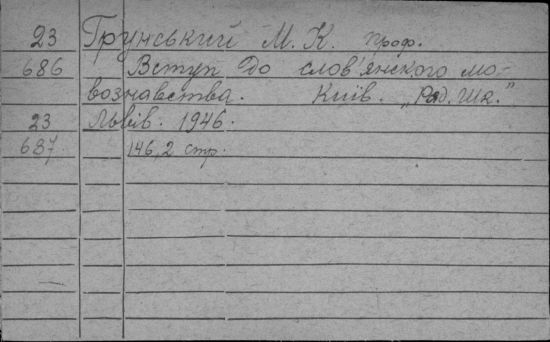 23 Грунський М. К. проф.
686 Вступ до слов'янского мо-
вознавства. Київ. „Рад. шк."
23 Львів. 1946.
687 146,2 стр.